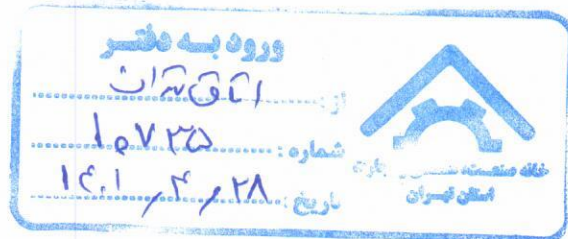 ورود به دفتر
از: اتاق تهران
شماره: ۱۰۷۳۵
تاریخ: ۱۴۰۱٫۴٫۲۸
خانه صنعت، معدن و تجارت
استان تهران